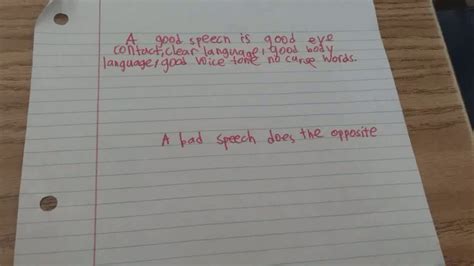 A good speech is good eye
contact, clear language, good body
language, good voice tone no curse words.
A bad speech does the opposite